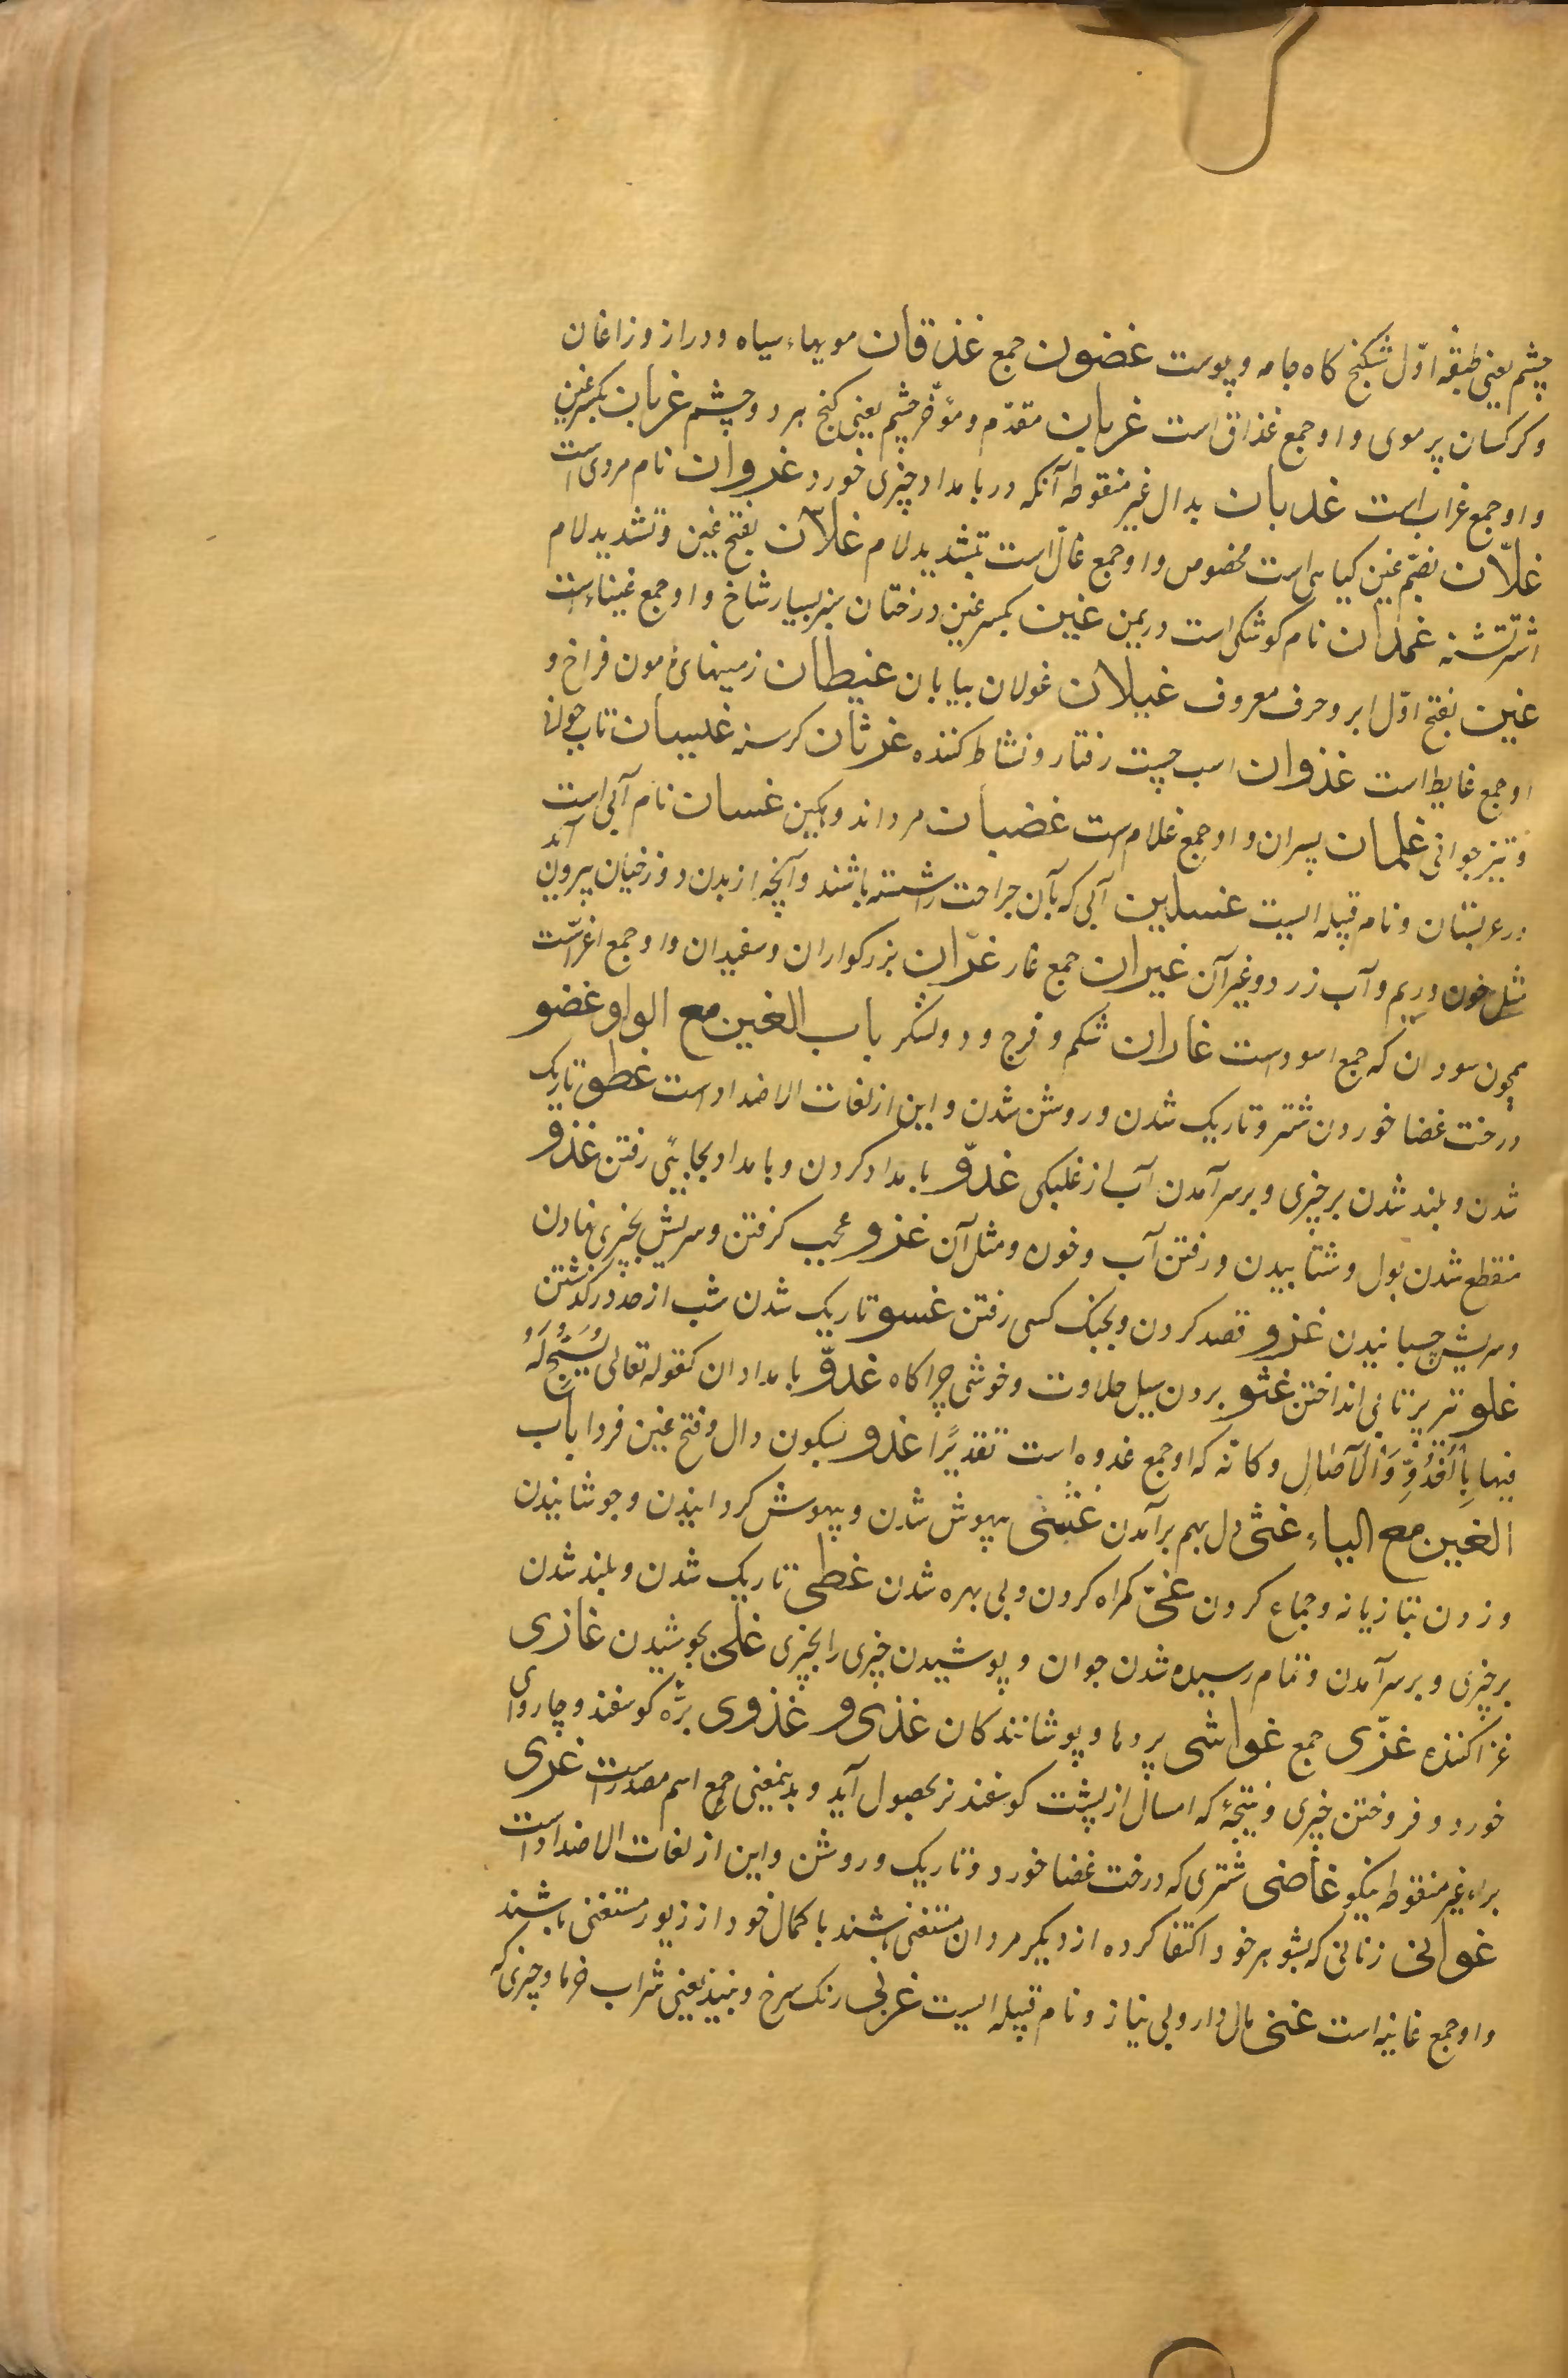 چشم یعنی طبقهٔ اوّل شکنج کاه جامه و پوست غضون جمع غذقان مویهاء سیاه و دراز و زاغان
و کرکسان پر موی و او جمع غذاق است غربان مقدّم و مؤخّر چشم یعنی کنج هر دو چشم غربان بکسر غین
و او جمع غراب است غدبان بدال غیر منقوطه آنکه در بامداد چیزی خورد غزوان نام مردی است
غلّان بضمّ غین کیاهی است مخصوص و او جمع غالّ است بتشدید لام غلّان بفتح غین و تشدید لام
اشتر تشنه غمدان نام کوشکی است در یمن غین بکسر غین درختان سبز بسیار شاخ و او جمع غیناء است
غین بفتح اوّل ابر و حرف معروف غیلان غولان بیابان غیطان زمینهای هٔامون فراخ و
او جمع غایط است غذوان اسب چست رفتار و نشاط کننده غرثان کرسنه غلیسان تاب جوانی
و تیز جوانی غلمان پسران و او جمع غلام است غضبان مرد اندوهکین غسان نام آبی است
در عربستان و نام قبیله ایست غسلین آبی که بآن جراحت را شسته باشند و آنچه از بدن دوزخیان بیرون آید
مثل خون و ریم و آب زرد و غیر آن غیران جمع غار غرّان بزرکواران و سفیدان و او جمع اغرّ است
همچون سودان که جمع اسود است غاران شکم و فرج و دو لشکر باب الغین مع الواو غضو
درخت غضا خوردن شتر و تاریک شدن و روشن شدن و این از لغات الاضداد است غطو تاریک
شدن و بلند شدن بر چیزی و بر سر آمدن آب از غلبکی غدوّ بامداد کردن و بامداد بجایی رفتن غذو
منقطع شدن بول و شتابیدن و رفتن آب و خون و مثل آن غرو عجب کرفتن و سریش بچیزی نهادن
و سریش چسبانیدن غزو قصد کردن و بجنک کسی رفتن غسو تاریک شدن شب از حد درکذشتن
غلو تیر پرتابی انداختن غثو بردن سیل حلاوت و خوشی چراکاه غدوّ بامدادان کقوله تعالی یُسَبِّحُ لَهُ
فیها بِالْغُدُوِّ وَالْآصَالِ و کانّه که او جمع غدوه است تقدیرًا غدو بسکون دال و فتح غین فردا باب
الغین مع الیاء غثی دل بهم برآمدن غشی بیهوش شدن و بیهوش کردانیدن و جوشانیدن
و زدن بتازیانه و جماع کردن غیّ کمراه کردن و بی بهره شدن غطی تاریک شدن و بلند شدن
بر چیزی و بر سر آمدن و تمام رسیده شدن جوان و پوشیدن چیزی را بچیزی غلی بجوشیدن غازی
غزا کننده غزّی جمع غواشی پردها و پوشانندکان غذی و غذوی برّه کوسفند و چاروای
خورد و فروختن چیزی و نتیجه که امسال از پشت کوسفند نر بحصول آید و بدینمعنی جمع اسم مصدر است غری
براء غیر منقوطه نیکو غاضی شتری که درخت غضا خورد و تاریک و روشن و این از لغات الاضداد است
غوانی زنانی که بشوهر خود اکتفا کرده از دیکر مردان مستغنی باشند با کمال خود از زیور مستغنی باشند
و او جمع غانیه است غنی مال دار و بی نیاز و نام قبیله ایست غربی رنک سرخ و نبیذ یعنی شراب خرما و چیزی که